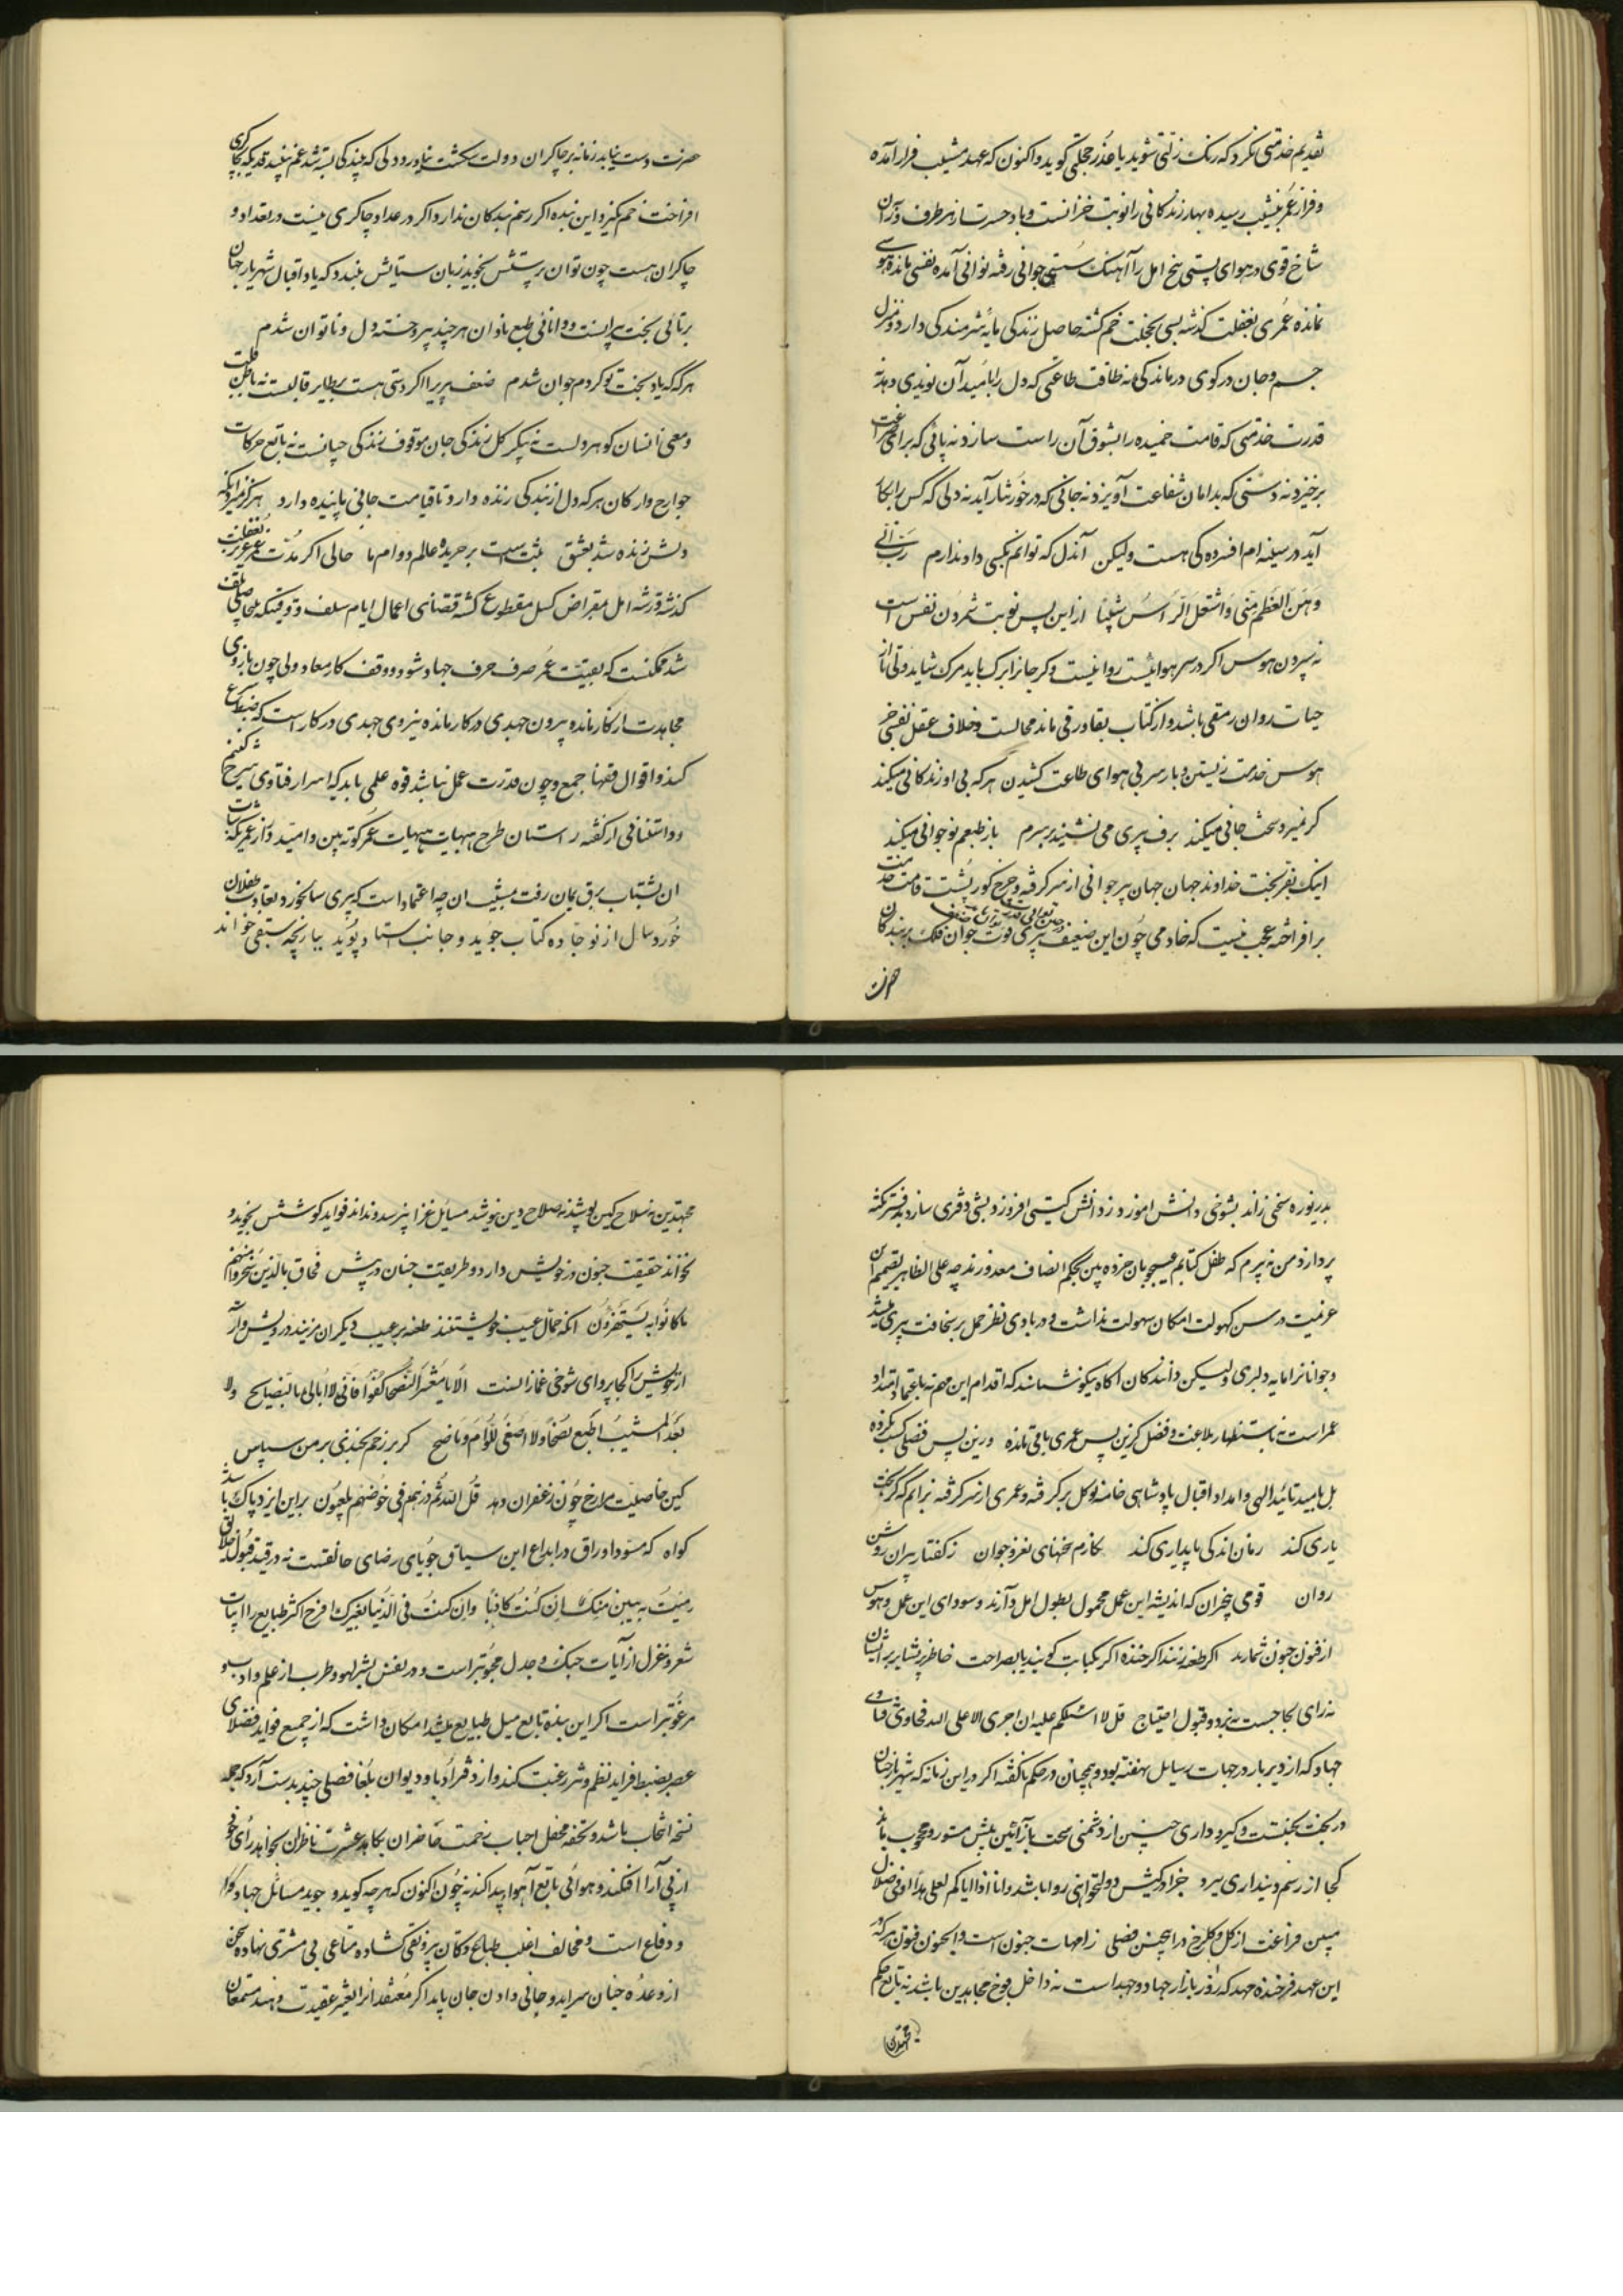 تقدیم خدمتی نکرد که رنگ زلتی شوید یا عذر خجلتی گوید و اکنون که عهد مشیب فراز آمده
و فراز عمر بنشیب رسیده بهار زندگانی را نوبت خزانست و باد حسرت از هر طرف وزان
شاخ قوی در هوای پستی بیخ امل را آهنگ سستی جوانی رفته توانی آمده نفسی مانده هوسی
نمانده عمری بغفلت گذشته بسی بخجلت خم گشته حاصل زندگی مایه شرمندگی دارد و منزل
جسم و جان در کوی درماندگی نه طاقت طاعتی که دل را بامید آن نویدی دهد نه
قدرت خدمتی که قامت خمیده را بشوق آن راست سازد نه پائی که برای
برخیزد نه دستی که بدامان شفاعت آویزد نه جانی که در خور نثار آید نه دلی که کس را بکار
آید در سینه ام افسرده کی هست ولیکن آندل که توانم بکسی داد ندارم رب انی
وهن العظم منی واشتعل الرأس شیبا از این پس نوبت شمردن نفس است
نه سپردن هوس اگر در سر هوائیست روا نیست و گر جانرا برگ باید مرگ شاید ولی تا از
حیات روان رمقی باشد و از کتاب بقا ورقی ماند محالست و خلاف عقل نفسی جز
هوس خدمت زیستن و بار سر بی هوای طاعت کشیدن هر که بی او زندگانی میکند
گر نمیرد سخت جانی میکند برف پیری می نشیند بر سرم باز طبعم نوجوانی میکند
اینک بفر بخت خداوند جهان جهان پیر جوانی از سر گرفته و چرخ کوز پشت قامت
برافراخته عجب نیست که خادمی چون این ضعیف پیری قوت جوان بر بندگان
حضرت
حضرت دست نیابد زمانه بر چاکران دولت شکست نیاورد دلی که ببندگی بسته شد غم نبیند قدی که بچاکری
افراخت خم نگیرد این بنده اگر رسم بندگان ندارد و اگر در عداد چاکری نیست در تعداد
چاکران هست چون توان پرستش نجوید زبان ستایش بندد که یاد اقبال شهریار جهان
برنائی بخت پیرانست و توانائی طبع ناتوان هر چند پیر و خسته دل و ناتوان شدم
هر گه که یاد بخت تو کردم جوان شدم ضعف پیری را اگر دستی هست بظاهر قالبست نه باطن قلب
و معنی انسان گوهر دلست نه پیکر گل زندگی جان موقوف زندگی حیاتست نه تابع حرکات
جوارح و ارکان هر که دل از بندگی زنده دارد تا قیامت جانی پاینده دارد هرگز نمیرد آنکه
دلش زنده شد بعشق ثبت است بر جریده عالم دوام ما حالی اگر مدت عمر عزیز بغفلت
گذشته و رشته امل بمقراض کسل مقطوع گشته قضای اعمال ایام سلف
شد ممکنست که بقیت عمر صرف حرف جهاد شود و وقف کار معاد ولی چون بازوی
مجاهدت از کار مانده بیرون جهدی در کار مانده نیروی جهدی در کار است که
کند و اقوال فقها جمع و چون قدرت عمل نباشد قوه علمی باید که اسرار فتاوی شرح
و داستانی از گفته راستان طرح هیهات هیهات عمر کوته بین و امید دراز عمری که
ان بشتاب برق یمان رفت مشیب ان چه اعتماد است که پیری سالخورد بعادت طفلان
خورد سال از نو جاده کتاب جوید و جانب استاد پوید بیاریچه سبقی خواند
بدریوزه سخنی راند بشوخی دانش اموزد و زدانش گیتی افروزد و بشبی دفتری سازد بدفتر نکته
پردازد من نه پیرم که طفل کتابم عیبجویان خرده بین بحکم انصاف معذورند چه علی الظاهر تصمیم این
عزیمت در سن کهولت امکان سهولت نداشت و در بادی نظر حمل بر سخافت پیری میشد
و جوانانرا مایه دلیری و لیکن دانندگان آگاه نیکو شناسند که اقدام این مهم نه باعتماد امتداد
عمر است نه باستظهار بلاغت و فضل کزین پس عمری باقی نمانده و زین پیش فضلی کسب نکرده
بل بامید تائید الهی و امداد اقبال پادشاهی خامه توکل بر گرفته و عمری از سر گرفته برانم که گر بخت
یاری کند زمان اندکی پایداری کند نگارم سخنهای نغز و جوان ز گفتار پیران روشن
روان قومی بیخبران که اندیشه این عمل محمول بطول امل دارند و سودای این عمل و هوس
از فنون جنون شمارند اگر طعنه زنند اگر خنده اگر بکنایت گویند یا بصراحت خاطر پریشان بر ایشان
نه رای لجاجست نه برد و قبول احتیاج قل لا اسئلکم علیه ان اجری الا علی الله فحاوی فتاوی
جهاد که از دیر باز در جهات رسایل نهفته بود و همچنان در حکم ناگفته اگر در این زمانه که شهریار جهان
در بخت بجنگست و گیرو داری چنین از دشمنی سخت باز آئین پیش مستور و محجوب ماند
کجا از رسم دینداری سزد جز در کیش دولتخواهی روا باشد وانا او ایاکم لعلی هدی او فی ضلال
مبین فراغت از گل و گلرخ در انچنین فصلی زامهات جنون است والجنون فنون هر که در
این عهد فرخنده مهد که روز بازار جهاد و جهد است نه داخل فوج مجاهدین باشد نه تابع حکم
مجتهدین
مجتهدین نه سلاح کین پوشد نه صلاح دین نیوشد مسایل غزا نپرسد و نداند فواید کوشش نجوید و
نخواند حقیقت جنون در خویش دارد و طریقت جنان در پیش فحاق بالذین سخروا منهم
ما کانوا به یستهزؤن انکه حمال عیب خویشتنند طعنه بر عیب دیگران مزنید درویش وار
از خویش را کجا پروای شوخی غماز است الا یا معشر النصحاء کفوا فانی لا ابالی بالنصایح ولا
بعد المشیب اطیع نصحا ولا اصغی للوام وناصح گر بر زخم بخندی بر من سپاس
کین خاصیت مرا رخ چون زعفران دهد قل الله ثم ذرهم فی خوضهم یلعبون براین ایزد پاک باشد
گواه که مسود اوراق در ابداع این سیاق جویای رضای خالقست نه در قید قبول خلایق
رضیت بیمن منک ان کنت کاتبا وان کنت فی الدنیا بغیرک افرح اکثر طبایع را ابیات
شعر و غزل از آیات جنگ و جدل محبوبتر است و در نفس بشر لهو و طرب از علم و ادب
مرغوبتر است اگر این بنده تابع میل طبایع میشد امکان داشت که از جمیع فواید فضلای
عصر بضبط فراید نظم و نثر رغبت کند و از دفتر ادبا و دیوان بلغا فصلی چند بدست آرد که جمله
نسخه انتخاب باشد و تحفه محفل احباب زحمت حاضران بکاهد عشرت ناظران بخواهد رای خود
از پی آرا افکند و هوائی تابع اهوا پیدا کند نه چون اکنون که هر چه گوید و جوید مسائل جهاد
و دفاع است و مخالف اغلب طباع دکان بیرونقی گشاده متاعی بی مشتری نهاده سخن
از وعده جنان سراید و جانی دادن جان باید اگر معتقدانرا تغییر عقیدت دهند مستمعان